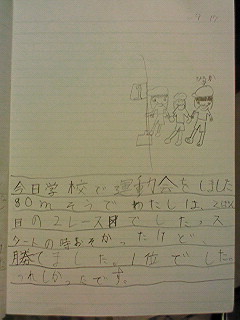 今日学校で運動会をしました
80mそうでわたしは、2回
目の2レース目でした。ス
タートの時おそかったけど、
勝てました。1位でした。
うれしかったです。